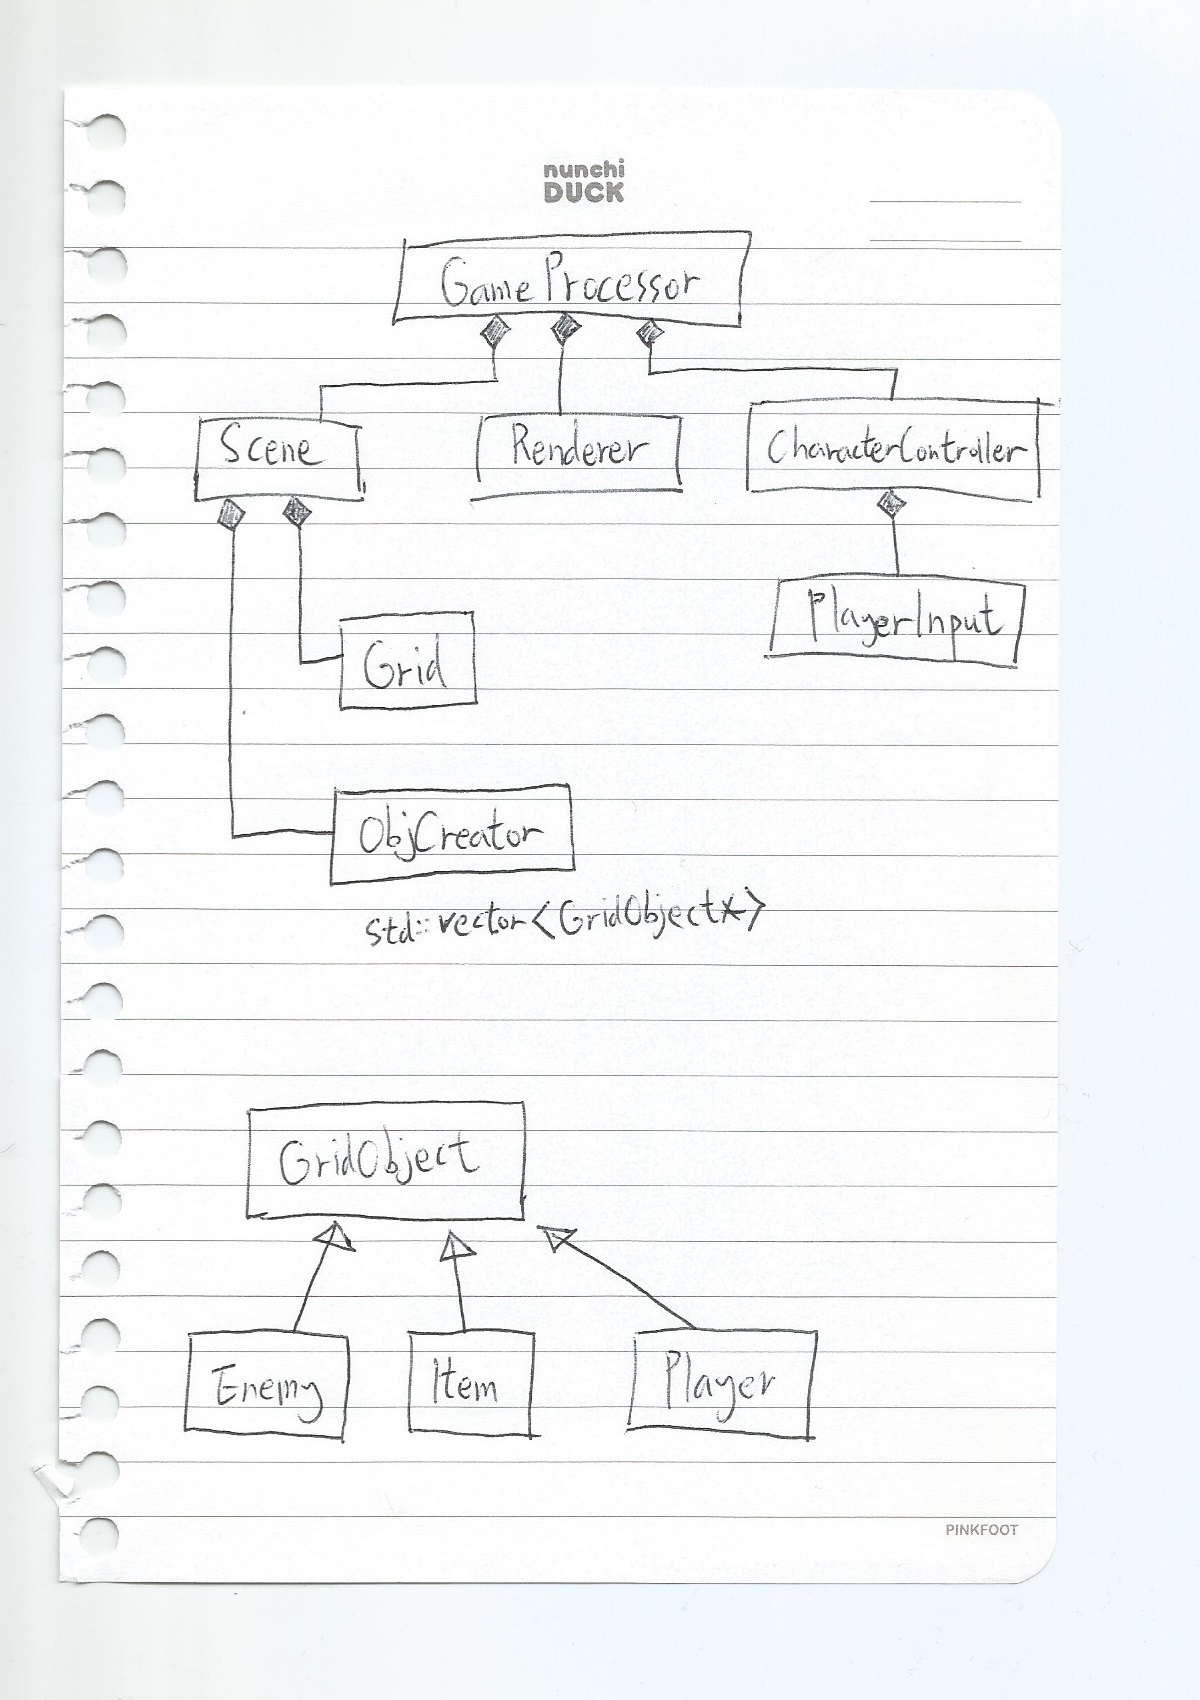 nunchi
DUCK
GameProcessor
Scene
Renderer
CharacterController
PlayerInput
Grid
ObjCreator
std::vector<GridObject*>
GridObject
Enemy
Item
Player
PINKFOOT